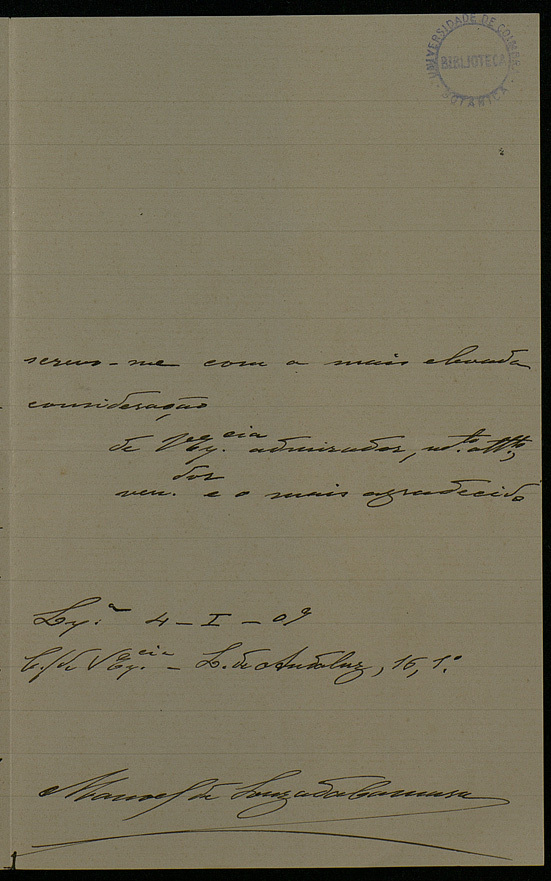 UNIVERSIDADE DE COIMBRA
BIBLIOTECA
BOTANICA
screvo-me com a mais elevada
consideração
de V. Ex.cia admirador, m.to att.to,
ven.dor e o mais agradecido
Lx.a 4-I-09
C/ de V. Ex.cia - L. de Andaluz, 15, 1.º
Manoel de Souza da Camara